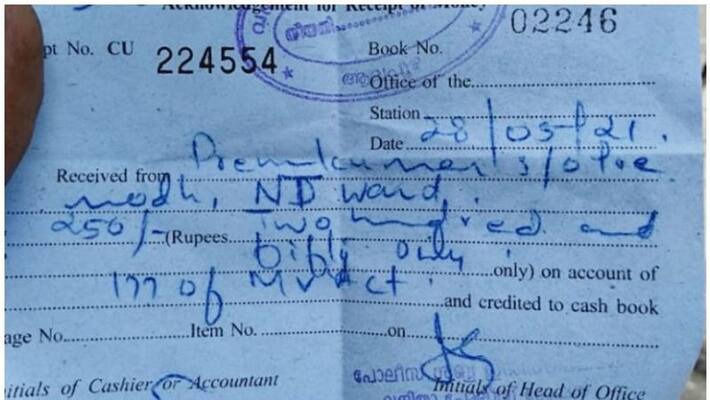 Acknowledgement for Receipt of Money
02246
pt No. CU 224554
Book No.
Office of the
Station
Date 28/05/21.
Received from Premkumar s/o Pre
modh, ND ward,
250/- (Rupees Two hundred and
fifty only only) on account of
177 of MV Act.
and credited to cash book
age No. Item No. on
nitials of Cashier or Accountant
Initials of Head of Office
പോലീസ്